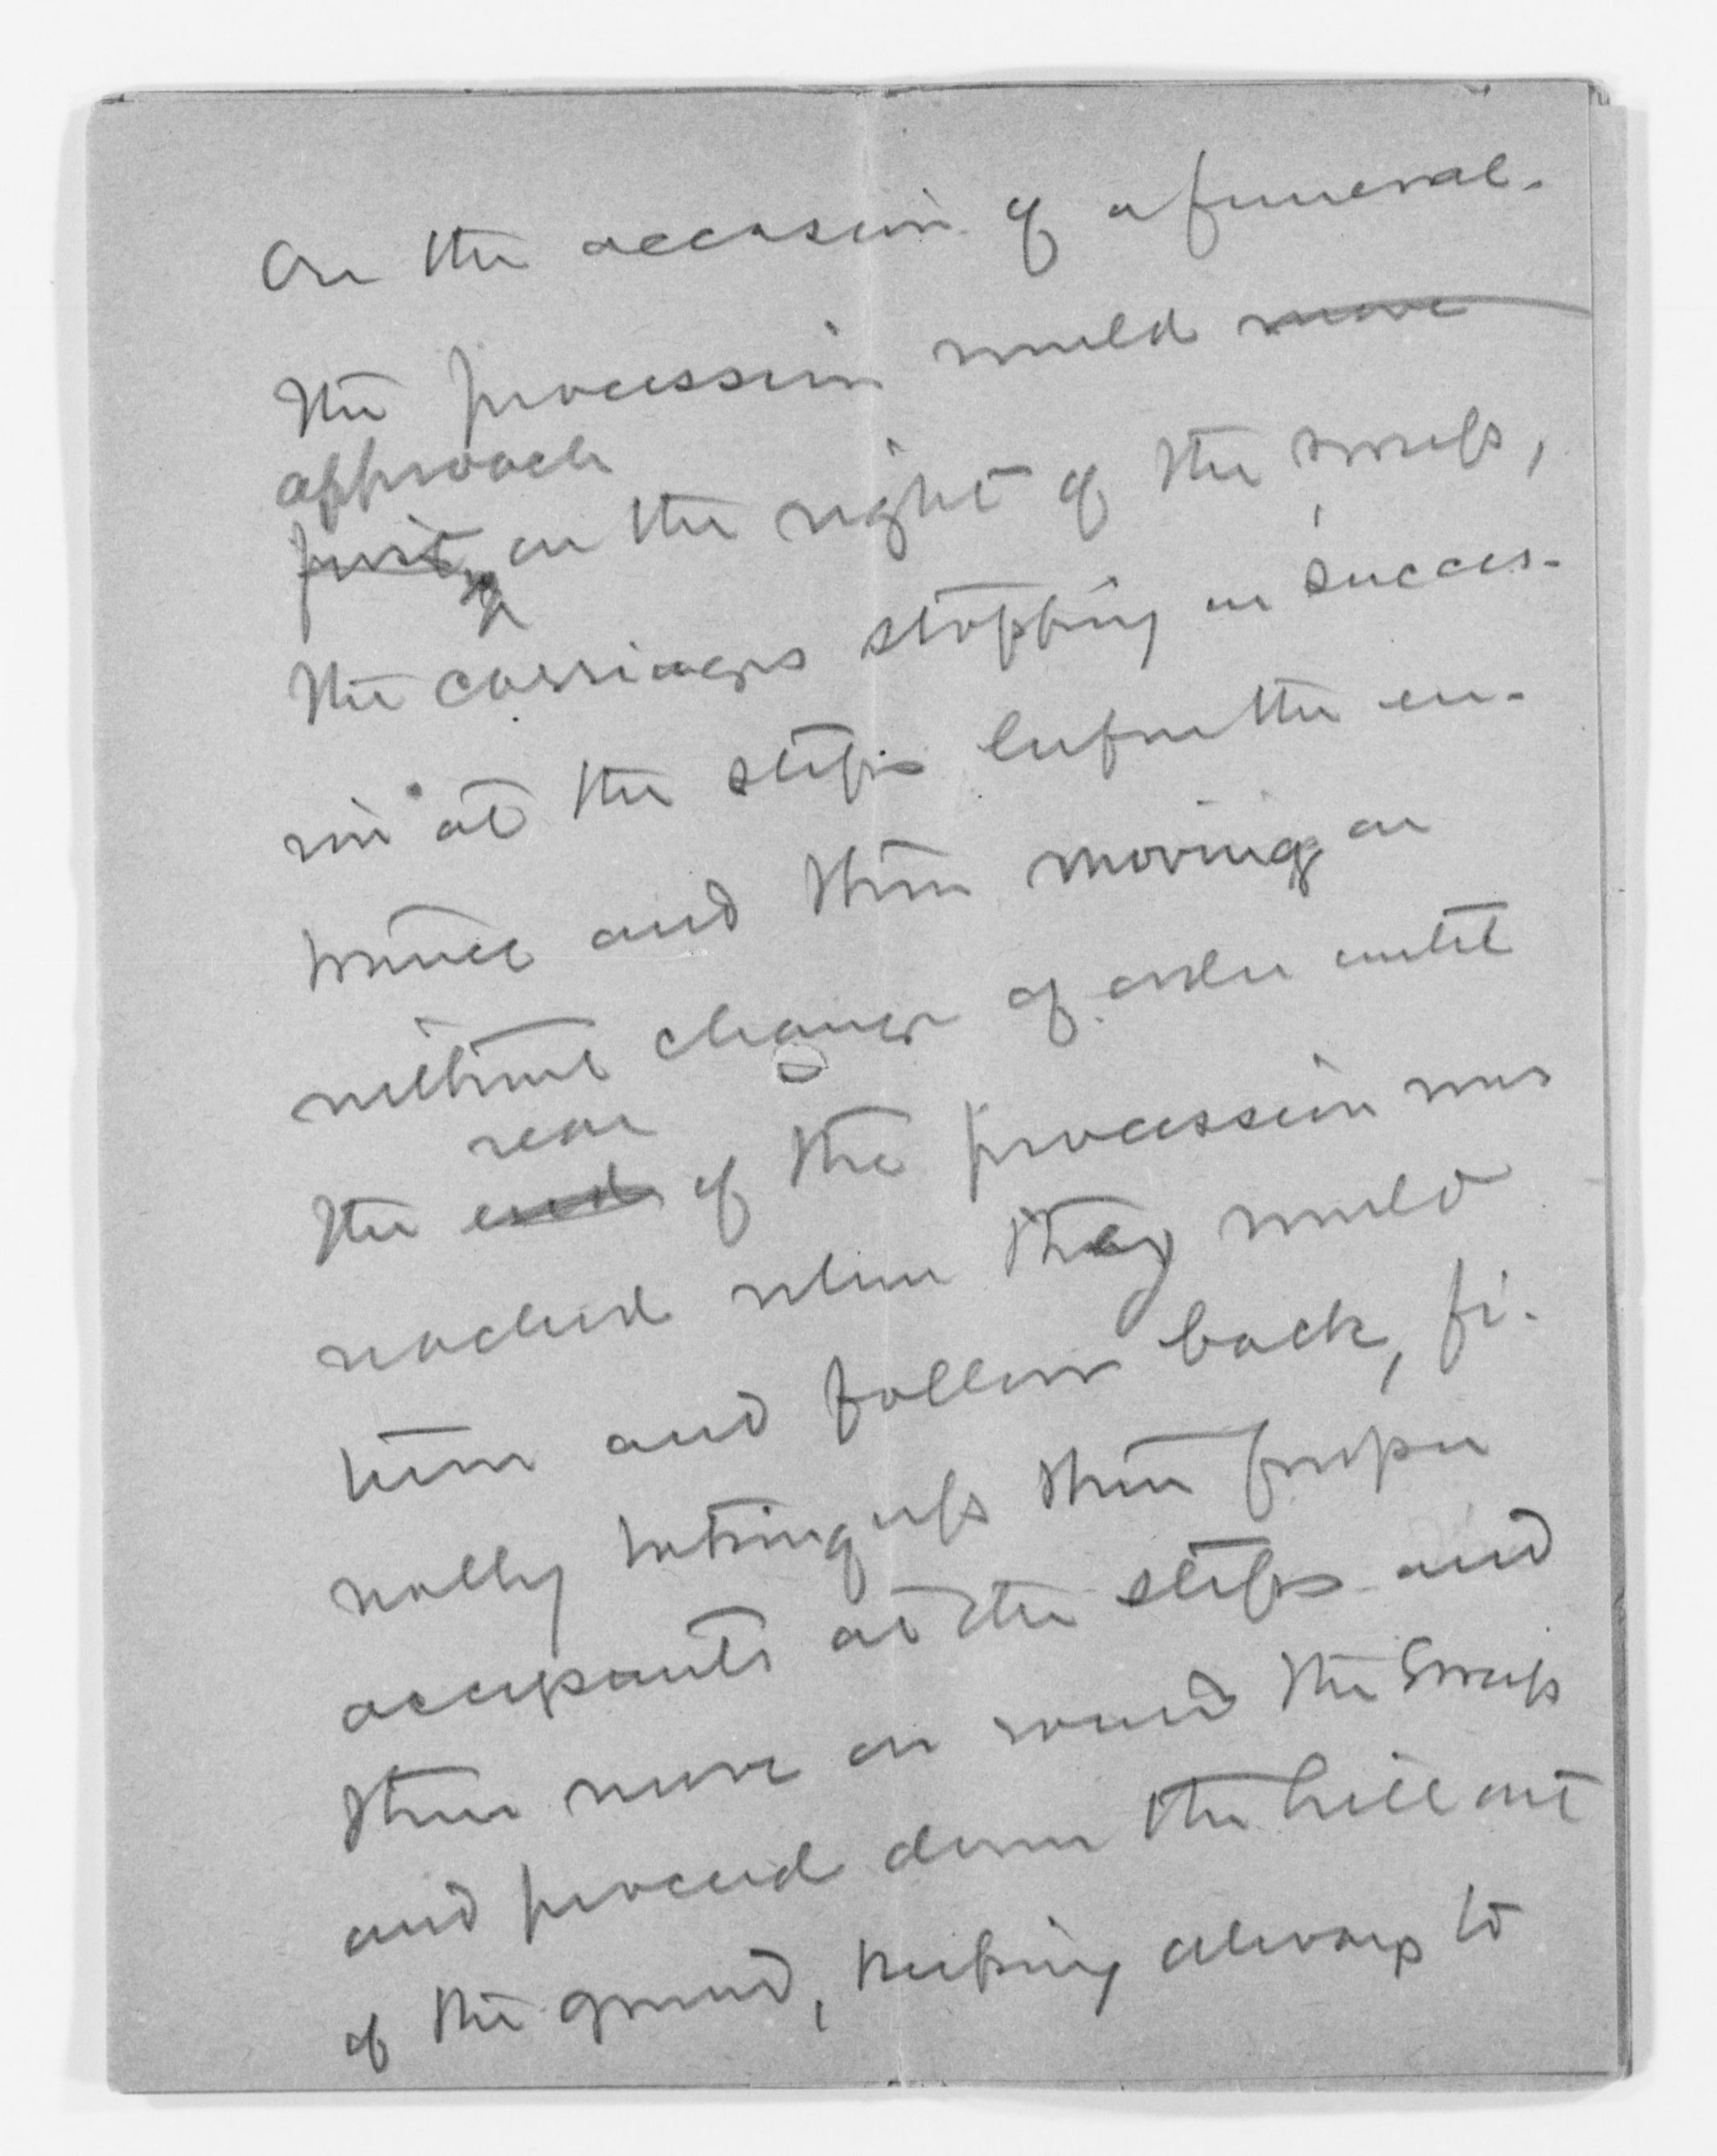 On the occasion of a funeral.
the procession would move
approach
first, on the right of the sweep,
the carriages stopping in succes-
sion at the steps before the en-
trance and then moving on
without change of order until
rear
the end of the procession was
reached when they would
turn and follow back, fi-
nally taking up their proper
occupants at the steps and
then move on round the Sweep
and proceed down the hill out
of the ground, keeping always to